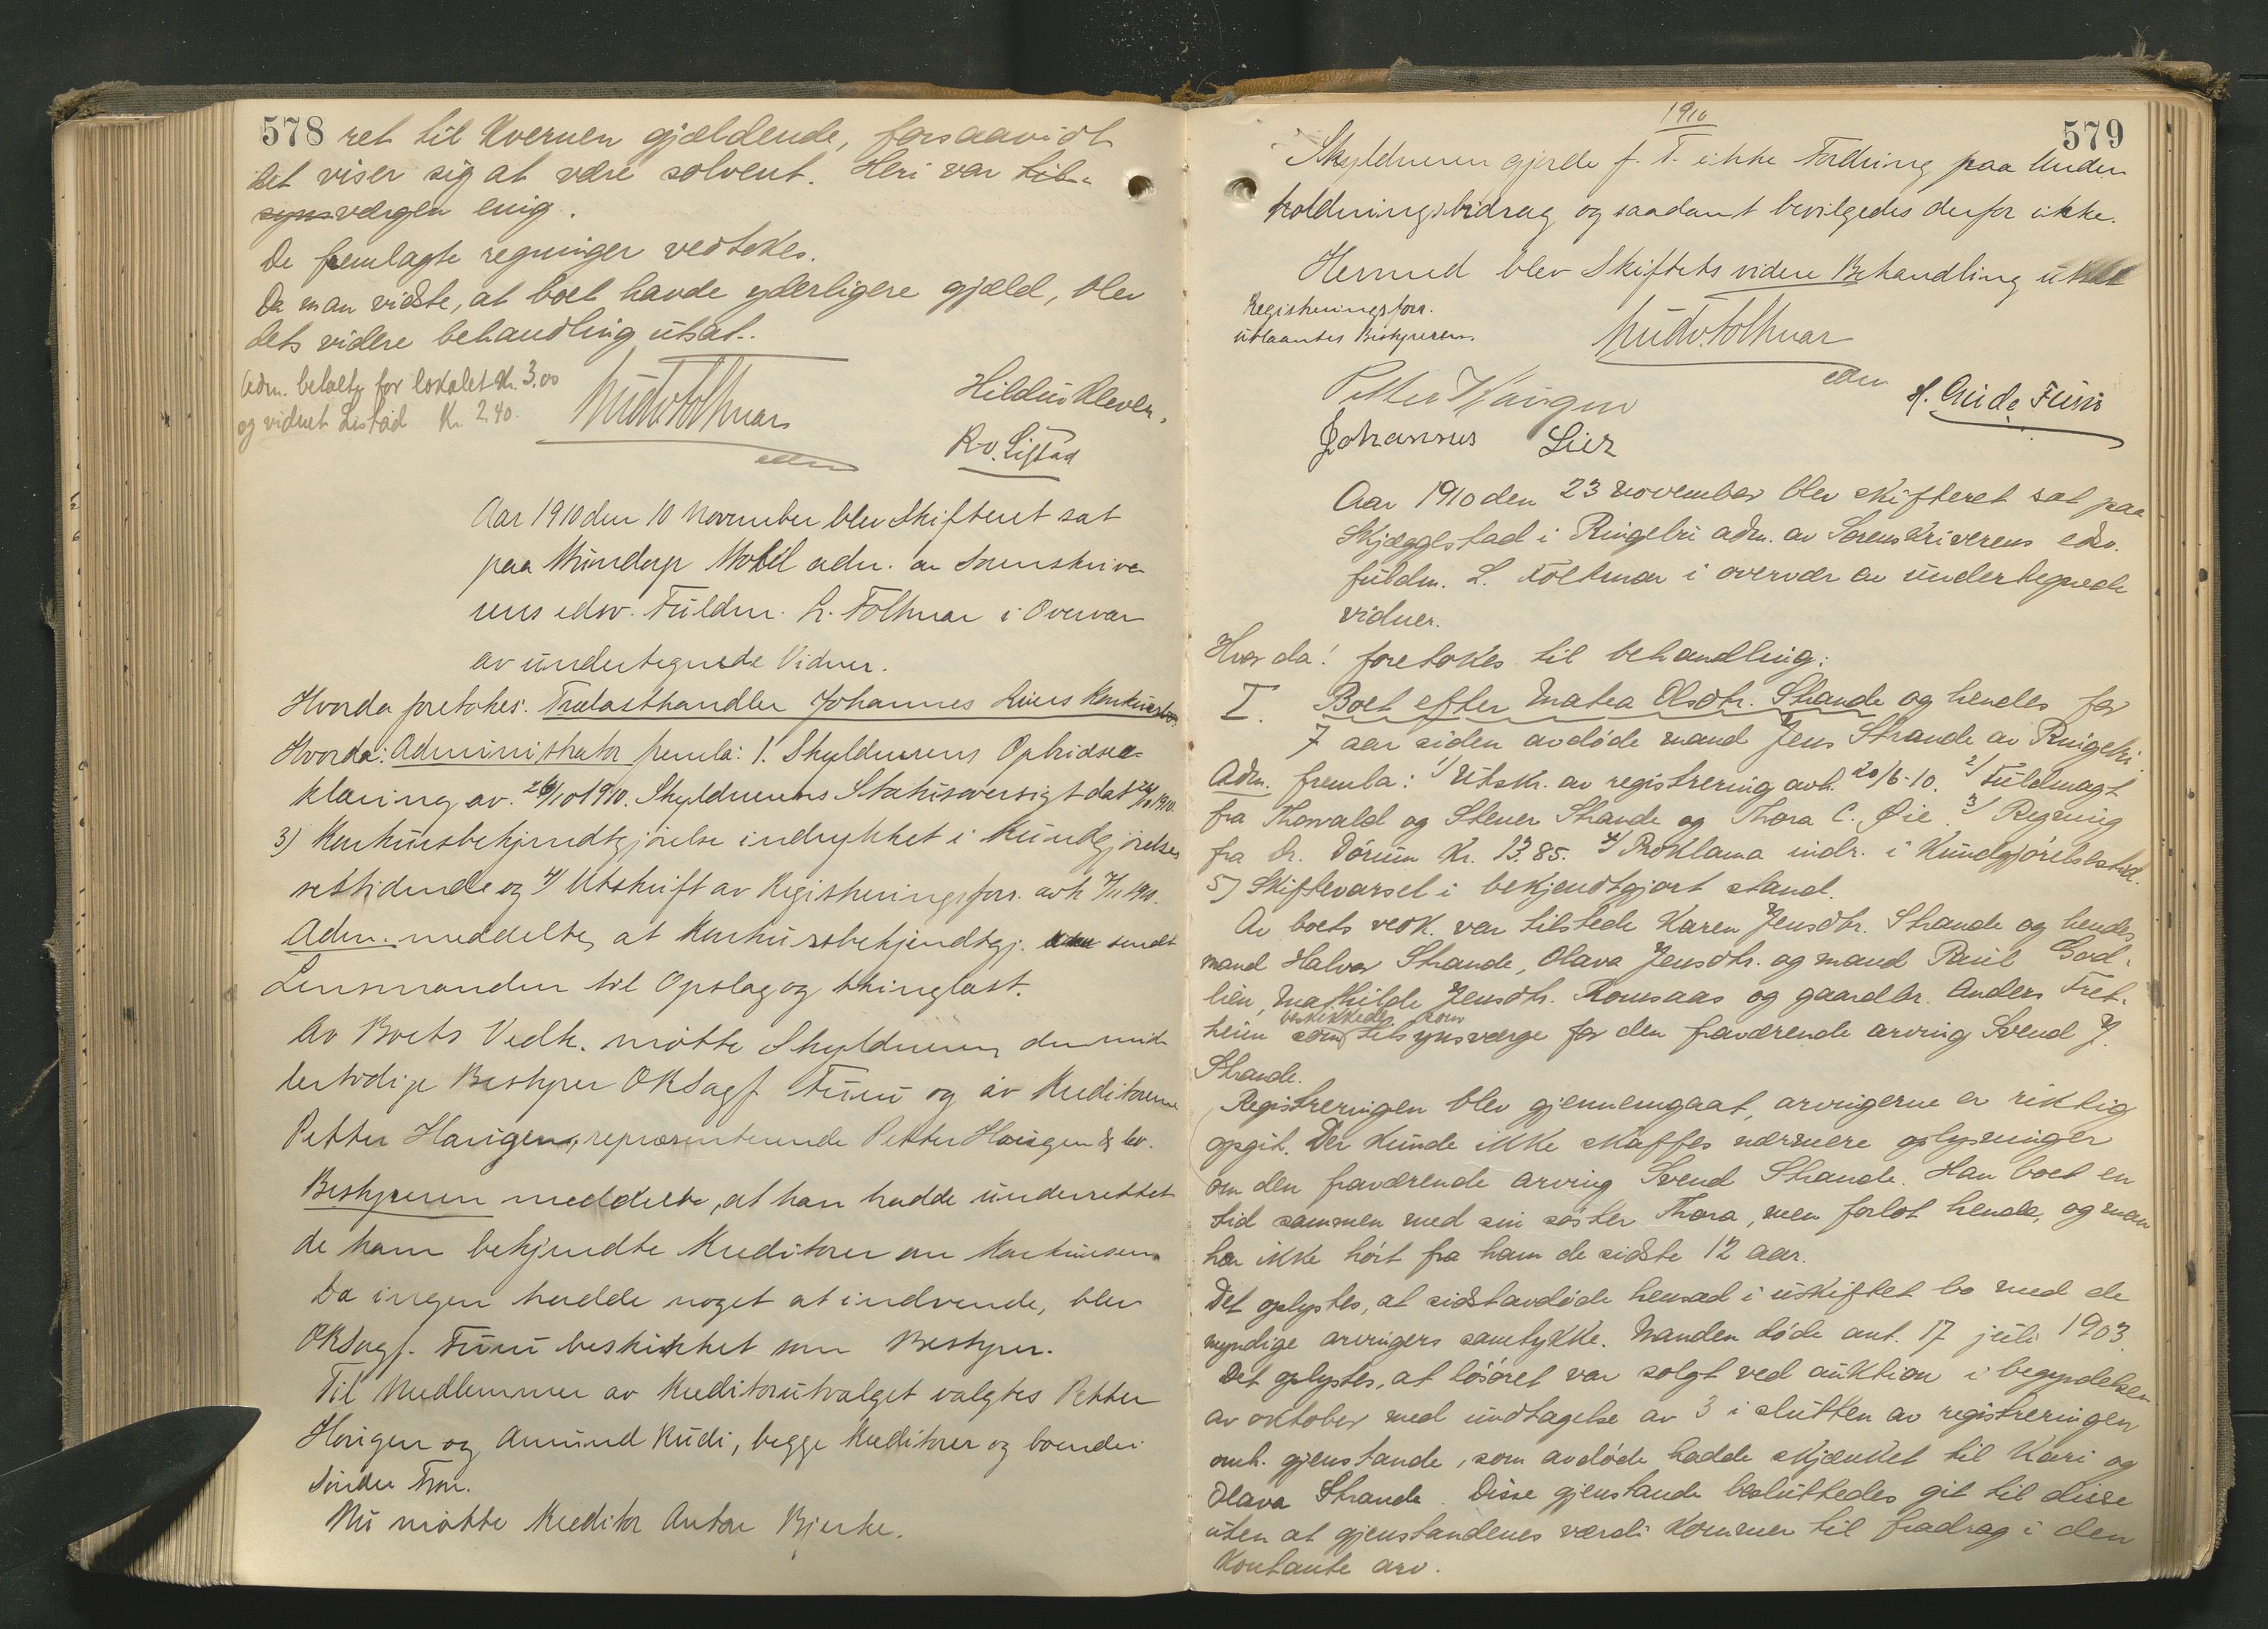 578 ret til Kvernen gjældende, forsaavidt
det viser sig at være solvent. Heri var til-
synsværgen enig.
De fremlagte regninger vedtokes.
Da man vidste, at boet havde yderligere gjæld, blev
dets videre behandling utsat.
Adm. betalte for lokalet Kr. 3.00
og vidnet Listad Kr. 2.40.
Ludv. Foltmar
edsv
Hildur Kleven.
R. O. Listad
Aar 1910 den 10 November blev Skifteret sat
paa Hotel adm. av Sorenskrive
rens edsv. Fuldm. L. Foltmar i Overvær
av undertegnede Vidner.
Hvorda foretokes: Trælasthandler Johannes Liers Konkursbo.
Hvorda: Administrator fremla: 1. Skyldnerens Opbudser-
klæring av 26/10 1910. Skyldnerens Statusoversigt dat 24/10 1910.
3) Konkursbekjendtgjørelse indrykket i Kundgjørelses
restidende og 4) Utskrift av Registreringsforr. avh 7/11 1910.
Adm. meddelte, at Konkursbekjendtgj. sendt
Lensmanden til Opslag og thinglæst.
Av Boets Vedk. møtte Skyldneren, den mid
lertidige Bestyrer ORSagf. Furu og av Kreditorerne
Petter Haugen, repræsenterende Petter Haugen & Co.
Bestyreren meddelte, at han hadde underrettet
de ham bekjendte Kreditorer om Konkursen.
Da ingen hadde noget at indvende, blev
ORSagf. Furu beskikket som Bestyrer.
Til Medlemmer av Kreditorutvalget valgtes Petter
Haugen og Amund Rudi, begge Kreditorer og boende i
Søndre Fron.
Nu møtte Kreditor Anton Bjerke.
1910
579
Skyldneren gjorde f. T. ikke Fordring paa Under
holdningsbidrag og saadant bevilgedes derfor ikke.
Hermed blev Skiftets videre Behandling utsat
Registreringsforr.
utlaantes Bestyreren.
Ludv. Foltmar
edsv
Petter Haugen
H. Furu
Johannes Lier
Aar 1910 den 23 november blev skifteret sat paa
Skjæggestad i Ringebu adm. av Sorenskriverens edsv.
fuldm. L. Foltmar i overvær av undertegnede
vidner.
Hvor da! foretokes til behandling:
I. Boet efter Matea Olsdtr. Strande og hendes for
7 aar siden avdøde mand Jens Strande av Ringebu.
Adm. fremla: 1/ Utskr. av registrering avh. 20/6-10. 2/ Fuldmagt
fra Thorvald og Stener Strande og Thora C. Øie. 3/ Regning
fra Dr. Dørum Kr. 13.85. 4/ Proklama indr. i Kundgjørelsestid.
5) Skiftevarsel i bekjendtgjort stand.
Av boets vedk. var tilstede Karen Jensdtr. Strande og hendes
mand Halvor Strande, Olava Jensdtr. og mand Paul Gord-
lien, Mathilde Jensdtr. Romsaas og gaardbr. Anders Tret-
heim som beskikkedes som tilsynsværge for den fraværende arving Svend J.
Strande.
Registreringen blev gjennemgaat, arvingerne er riktig
opgit. Der kunde ikke skaffes nærmere oplysninger
om den fraværende arving Svend Strande. Han boet en
tid sammen med sin søster Thora, men forlot hende, og man
har ikke hørt fra ham de sidste 12 aar.
Det oplystes, at sidstavdøde hensad i uskiftet bo med de
myndige arvingers samtykke. Manden døde ant. 17 juli 1903.
Det oplystes, at løsøret var solgt ved auktion i begyndelsen
av oktober med undtagelse av 3 i slutten av registreringen
omh. gjenstande, som avdøde hadde skjænket til Kari og
Olava Strande. Disse gjenstande besluttedes git til disse
uten at gjenstandenes værdi kommer til fradrag i den
kontante arv.